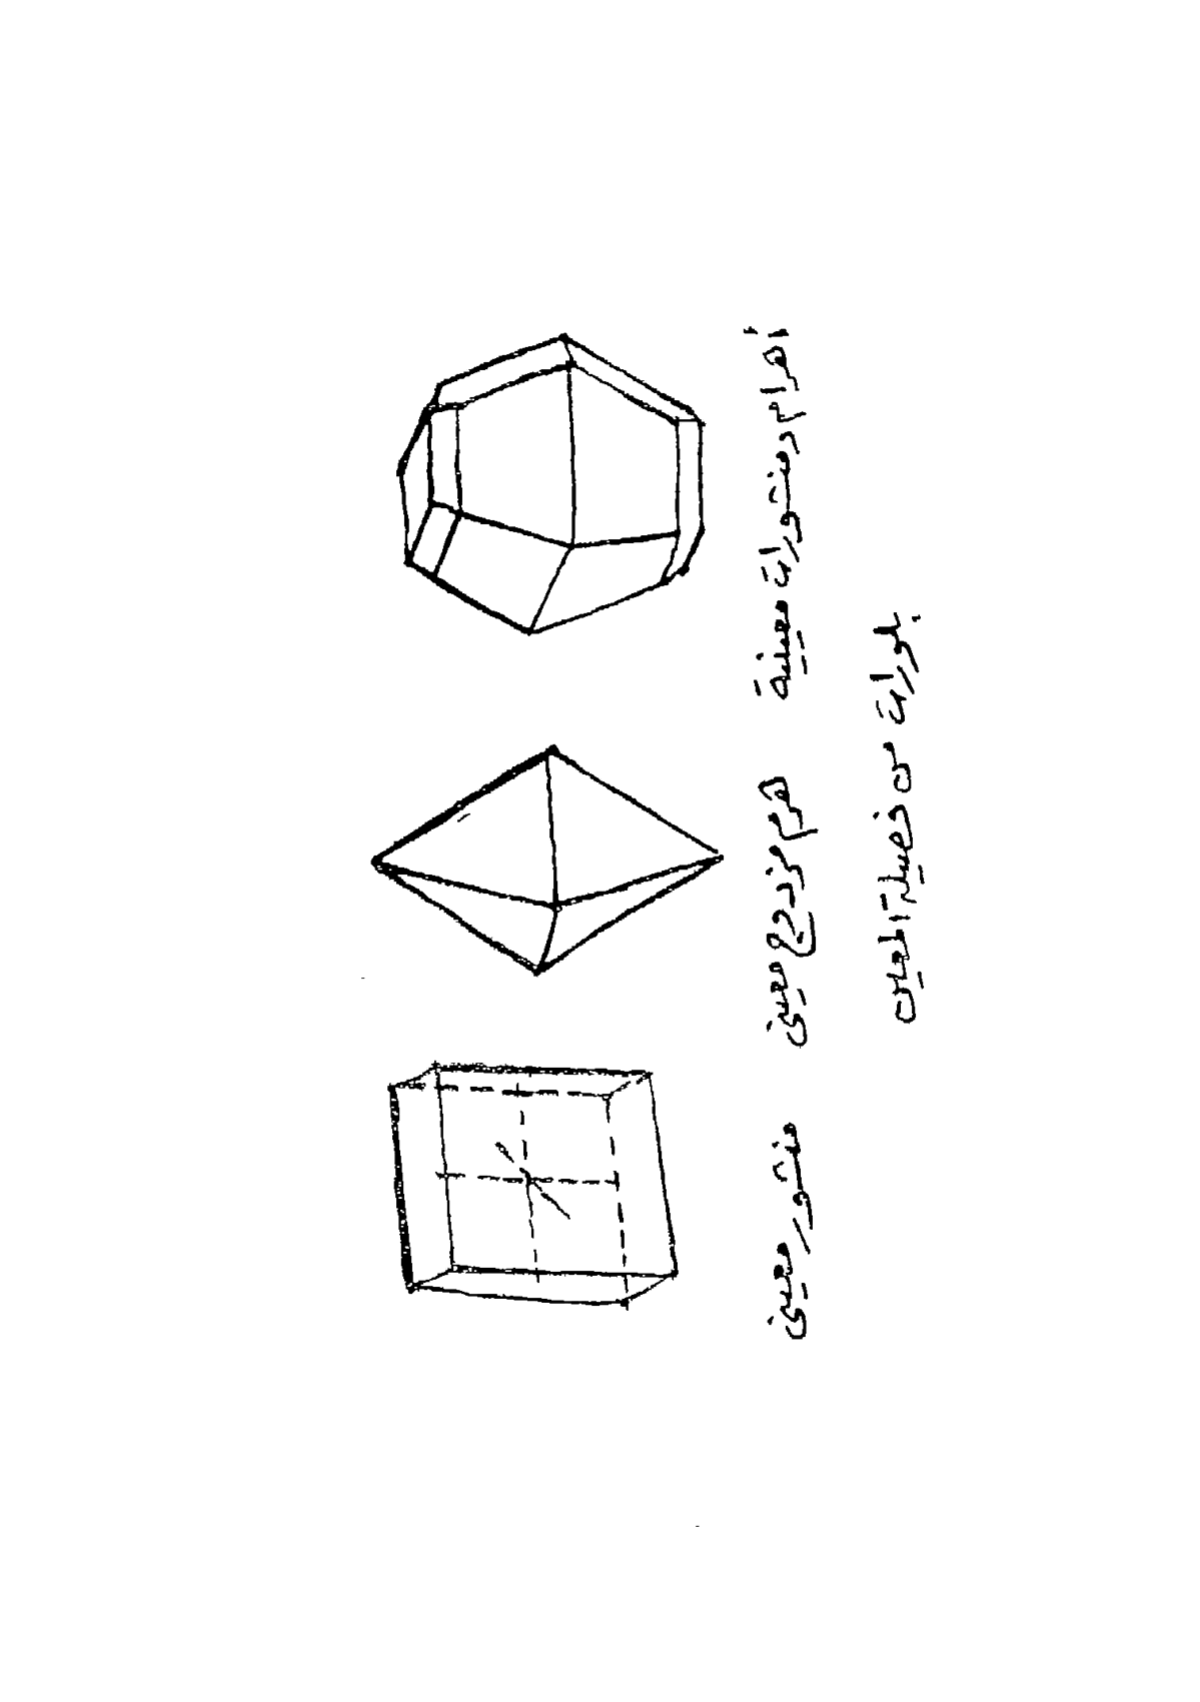 أهرام ومنشورات معينية
هرم مزدوج معينى
منشور معينى
بلورات من فصيلة المعين